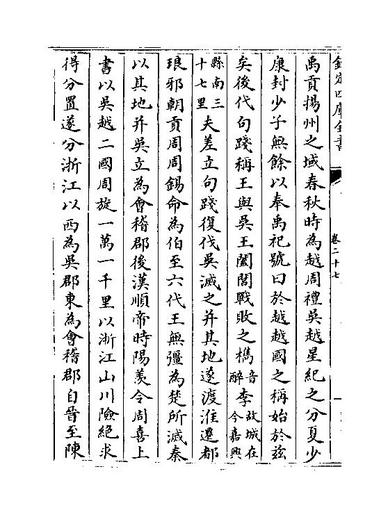 欽定四庫全書
卷二十七
禹貢揚州之域春秋時為越周禮吳越星紀之分夏少
康封少子無餘以奉禹祀號曰於越越國之稱始於兹
矣後代句踐稱王與吳王闔閭戰敗之檇音醉李故城在今嘉興
縣南三十七里夫差立句踐復伐吳滅之并其地遂渡淮還都
琅邪朝貢周周錫命為伯至六代王無彊為楚所滅秦
以其地并吳立為會稽郡後漢順帝時陽羨令周喜上
書以吳越二國周旋一萬一千里以浙江山川險絕求
得分置遂分浙江以西為吳郡東為會稽郡自晉至陳